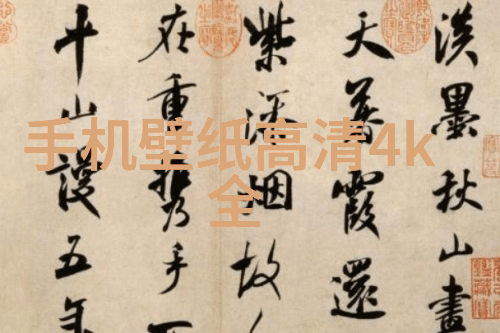 手机壁纸高清4k
全
淡墨秋山畫
天暮霞還
紫添烟故
在重攜手不
平山謾五年